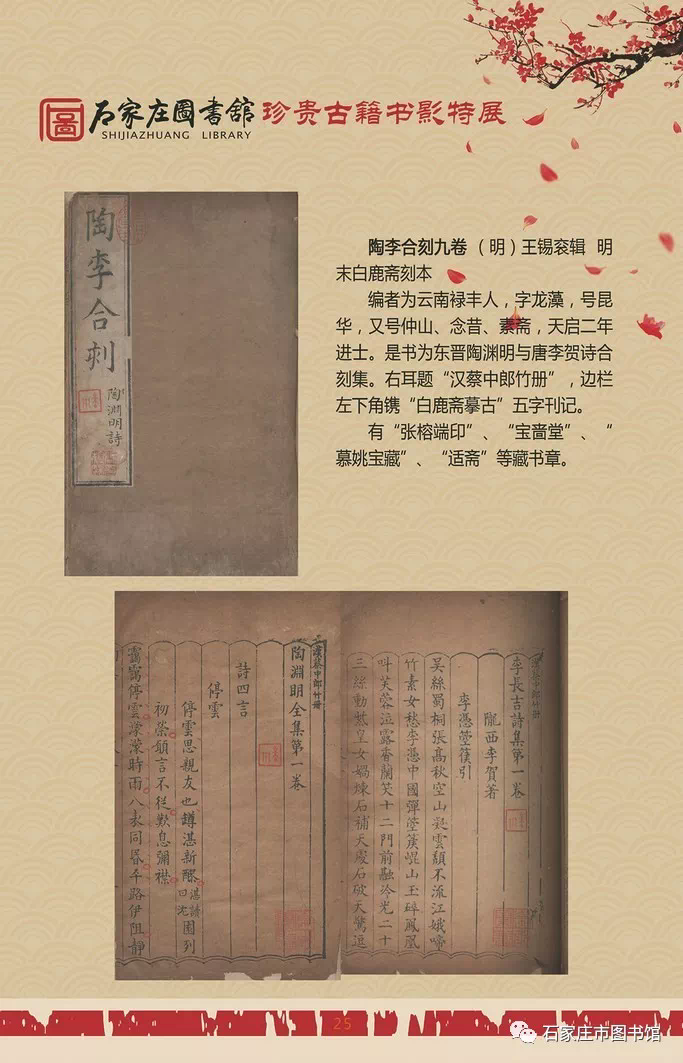 石家庄圖書館 珍贵古籍书影特展
SHIJIAZHUANG LIBRARY
陶李合刻九卷（明）王锡衮辑 明
末白鹿斋刻本
编者为云南禄丰人，字龙藻，号昆
华，又号仲山、念昔、素斋，天启二年
进士。是书为东晋陶渊明与唐李贺诗合
刻集。右耳题“汉蔡中郎竹册”，边栏
左下角镌“白鹿斋摹古”五字刊记。
有“张榕端印”、“宝啬堂”、“
慕姚宝藏”、“适斋”等藏书章。
陶李合刻
陶淵明詩
漢蔡中郎竹册
李長吉詩集第一卷
隴西李賀著
李憑箜篌引
吴絲蜀桐張高秋空山凝雲頹不流江娥啼
竹素女愁李憑中國彈箜篌崑山玉碎鳳凰
叫芙蓉泣露香蘭笑十二門前融冷光二十
三絲動紫皇女媧煉石補天處石破天驚逗
漢蔡中郎竹册
陶淵明全集第一卷
詩四言
停雲
停雲思親友也罇湛新醪湛讀曰沈園列
初榮願言不從歎息彌襟
靄靄停雲濛濛時雨八表同昏平路伊阻靜
25
石家庄市图书馆